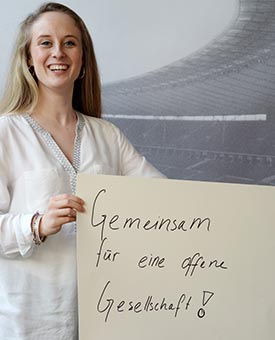 Gemeinsam
für eine offene
Gesellschaft!